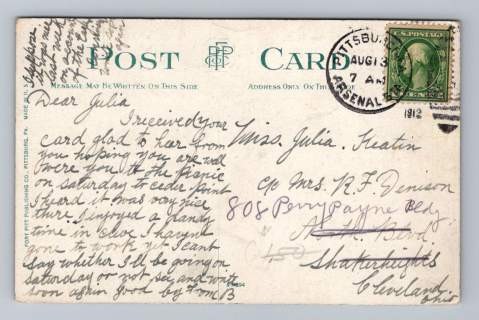 POST CARD
MESSAGE MAY BE WRITTEN ON THIS SIDE
ADDRESS ONLY ON THE
PITTSBURG
AUG 13
7 AM
ARSENAL STA
1912
U.S. POSTAGE
Dear Julia
I received your
card glad to hear from
you hoping you are well
were you at the picnic
on saturday to ceder Point
I heard it was very nice
there I injoyed a dandy
time in I havent
gone to work yet I cant
say whether I'll be going on
saturday or not and write
soon again good by Tom B
Miss. Julia. Keatin
c/o Mrs. R. F. Denison
808 Perry Payne Bldg.
Blvd.
Shakerheights
Cleveland
Ohio
FORT PITT PUBLISHING CO., PITTSBURG, PA. MADE IN U.S.